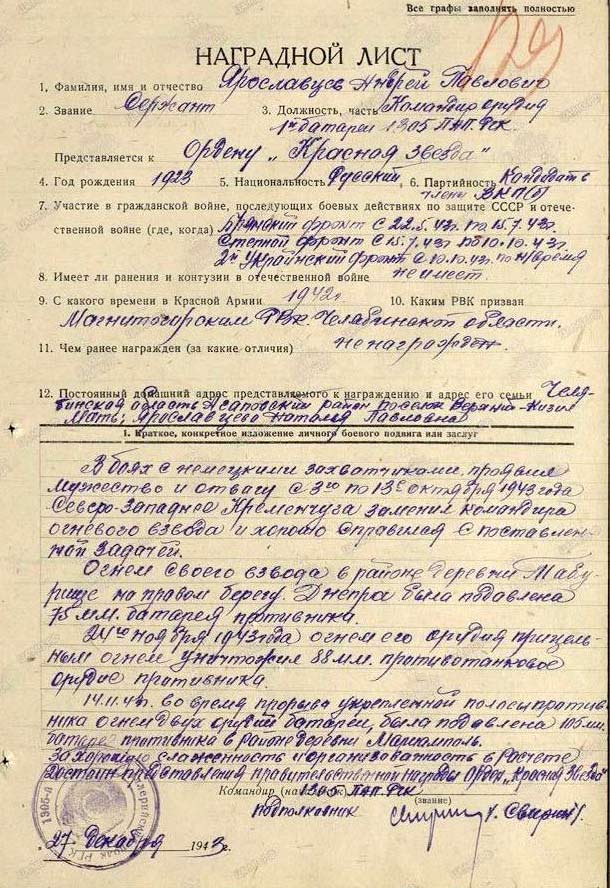 Все графы заполнять полностью
НАГРАДНОЙ ЛИСТ
1. Фамилия, имя и отчество Ярославцев Андрей Павлович
2. Звание Сержант 3. Должность, часть Командир орудия
1й батареи 1305 ПАП РГК.
Представляется к Ордену „Красная звезда"
4. Год рождения 1923 5. Национальность Русский 6. Партийность Кандидат в
члены ВКП(б)
7. Участие в гражданской войне, последующих боевых действиях по защите СССР и отече-
ственной войне (где, когда) Брянский фронт с 22.5.43г. по 15.7.43г.
Степной фронт с 15.7.43г по 10.10.43г.
2й Украинский фронт с 10.10.43г. по н/время
8. Имеет ли ранения и контузии в отечественной войне не имеет.
9. С какого времени в Красной Армии 1942г. 10. Каким РВК призван
Магнитогорским РВК. Челябинской области.
11. Чем ранее награжден (за какие отличия) не награжден.
12. Постоянный домашний адрес представляемого к награждению и адрес его семьи Челя-
бинская область район поселок
Мать: Ярославцева Наталья Павловна
1. Краткое, конкретное изложение личного боевого подвига или заслуг
В боях с немецкими захватчиками, проявил
мужество и отвагу с 3го по 13е октября 1943 года
Северо-Западнее Кременчуга заменил командира
огневого взвода и хорошо справился с поставлен-
ной задачей.
Огнем своего взвода в районе деревни Табу-
рище на правом берегу Днепра была подавлена
75 мм. батарея противника.
24го ноября 1943 года огнем его орудия прицель-
ным огнем уничтожил 88 мм. противотанковое
орудие противника.
14.11.43г. во время прорыва укрепленной полосы против-
ника огнем двух орудий батареи, была подавлена 105 мм.
батарея противника в районе деревни
За хорошую слаженность и организованность в расчете
Достоин представления правительственной награды Орден „Красная Звезда"
Командир 1305 ПАП. РГК
подполковник (звание)
27 декабря 1943г.
1305-й
РГК